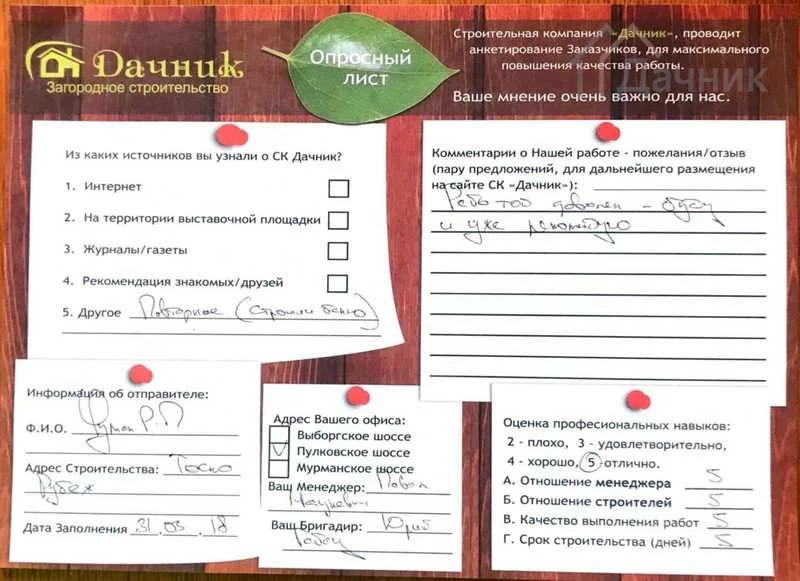 Дачник
Загородное строительство
Опросный
лист
Строительная компания «Дачник», проводит
анкетирование Заказчиков, для максимального
повышения качества работы.
Дачник
Ваше мнение очень важно для нас.
Из каких источников вы узнали о СК Дачник?
1. Интернет
2. На территории выставочной площадки
3. Журналы/газеты
4. Рекомендация знакомых/друзей
5. Другое Повторное (строили баню)
Комментарии о Нашей работе - пожелания/отзыв
(пару предложений, для дальнейшего размещения
на сайте СК «Дачник»):
Работой доволен - буду
и уже рекомендую
Информация об отправителе:
Ф.И.О. Р.П
Адрес Строительства: Тосно
Рубеж
Дата Заполнения 31.03.18
Адрес Вашего офиса:
Выборгское шоссе
Пулковское шоссе
Мурманское шоссе
Ваш Менеджер: Павел
Ваш Бригадир: Юрий
Оценка професиональных навыков:
2 - плохо, 3 - удовлетворительно,
4 - хорошо, 5 отлично.
А. Отношение менеджера 5
Б. Отношение строителей 5
В. Качество выполнения работ 5
Г. Срок строительства (дней) 5